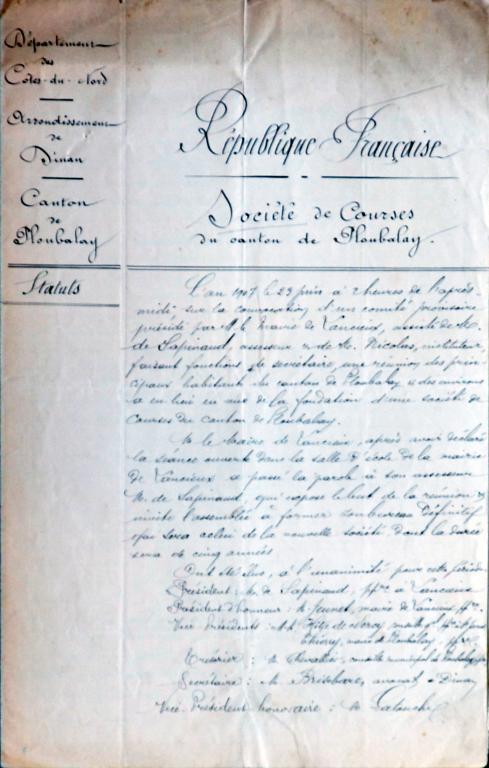 Département
des
Côtes-du-Nord
Arrondissement
de
Dinan
Canton
de
Ploubalay
Statuts
République Française
Société de Courses
du canton de Ploubalay.
L'an 1907 le 23 juin à 2 heures de l'après-
midi, sur la convocation d'un comité provisoire
présidé par M. le Maire de Lancieux, assisté de M.
de Lapinaud, assesseur & de M. Nicolas, instituteur,
faisant fonctions de secrétaire, une réunion des prin-
cipaux habitants du canton de Ploubalay & des environs
a eu lieu en vue de la fondation d'une société de
courses du canton de Ploubalay.
M. le Maire de Lancieux, après avoir déclaré
la séance ouverte dans la salle d'école de la mairie
de Lancieux a passé la parole à son assesseur
M. de Lapinaud, qui expose le but de la réunion &
invite l'assemblée à former son bureau définitif
qui sera celui de la nouvelle société dont la durée
sera de cinq années
Ont été élus, à l'unanimité pour cette période
Président : M. de Lapinaud, à Lancieux
Président d'honneur : M. Jeunet, maire de Lancieux,
Vice Présidents : M.M. de
maire de Ploubalay,
Trésorier : M. Chevalier, conseiller municipal de Ploubalay
Secrétaire : M. avocat à Dinan
Vice-Président honoraire : M.